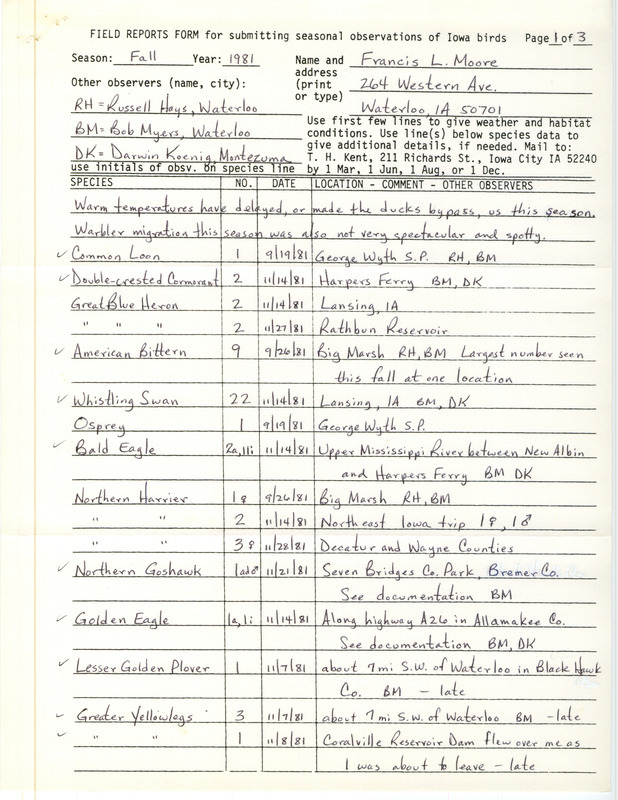 FIELD REPORTS FORM for submitting seasonal observations of Iowa birds Page 1 of 3
Season: Fall Year: 1981 Name and address (print or type) Francis L. Moore
264 Western Ave.
Waterloo, IA 50701
Other observers (name, city):
RH = Russell Hays, Waterloo
BM = Bob Myers, Waterloo
DK = Darwin Koenig, Montezuma
use initials of obsv. on species line
Use first few lines to give weather and habitat
conditions. Use line(s) below species data to
give additional details, if needed. Mail to:
T. H. Kent, 211 Richards St., Iowa City IA 52240
by 1 Mar, 1 Jun, 1 Aug, or 1 Dec.
SPECIES NO. DATE LOCATION - COMMENT - OTHER OBSERVERS
Warm temperatures have delayed, or made the ducks bypass, us this season.
Warbler migration this season was also not very spectacular and spotty.
✓ Common Loon 1 9/19/81 George Wyth S.P. RH, BM
✓ Double-crested Cormorant 2 11/14/81 Harpers Ferry BM, DK
Great Blue Heron 2 11/14/81 Lansing, IA
" " " 2 11/27/81 Rathbun Reservoir
✓ American Bittern 9 9/26/81 Big Marsh RH, BM Largest number seen
this fall at one location
✓ Whistling Swan 22 11/14/81 Lansing, IA BM, DK
Osprey 1 9/19/81 George Wyth S.P.
✓ Bald Eagle 2a, 11i 11/14/81 Upper Mississippi River between New Albin
and Harpers Ferry BM DK
Northern Harrier 1♀ 9/26/81 Big Marsh RH, BM
" " 2 11/14/81 Northeast Iowa trip 1♀, 1♂
" " 3♀ 11/28/81 Decatur and Wayne Counties
✓ Northern Goshawk 1ad♂ 11/21/81 Seven Bridges Co. Park, Bremer Co.
See documentation BM
✓ Golden Eagle 1a, 1i 11/14/81 Along highway A26 in Allamakee Co.
See documentation BM, DK
✓ Lesser Golden Plover 1 11/7/81 about 7 mi S.W. of Waterloo in Black Hawk
Co. BM - late
✓ Greater Yellowlegs 3 11/7/81 about 7 mi S.W. of Waterloo BM - late
✓ " " 1 11/8/81 Coralville Reservoir Dam flew over me as
I was about to leave - late